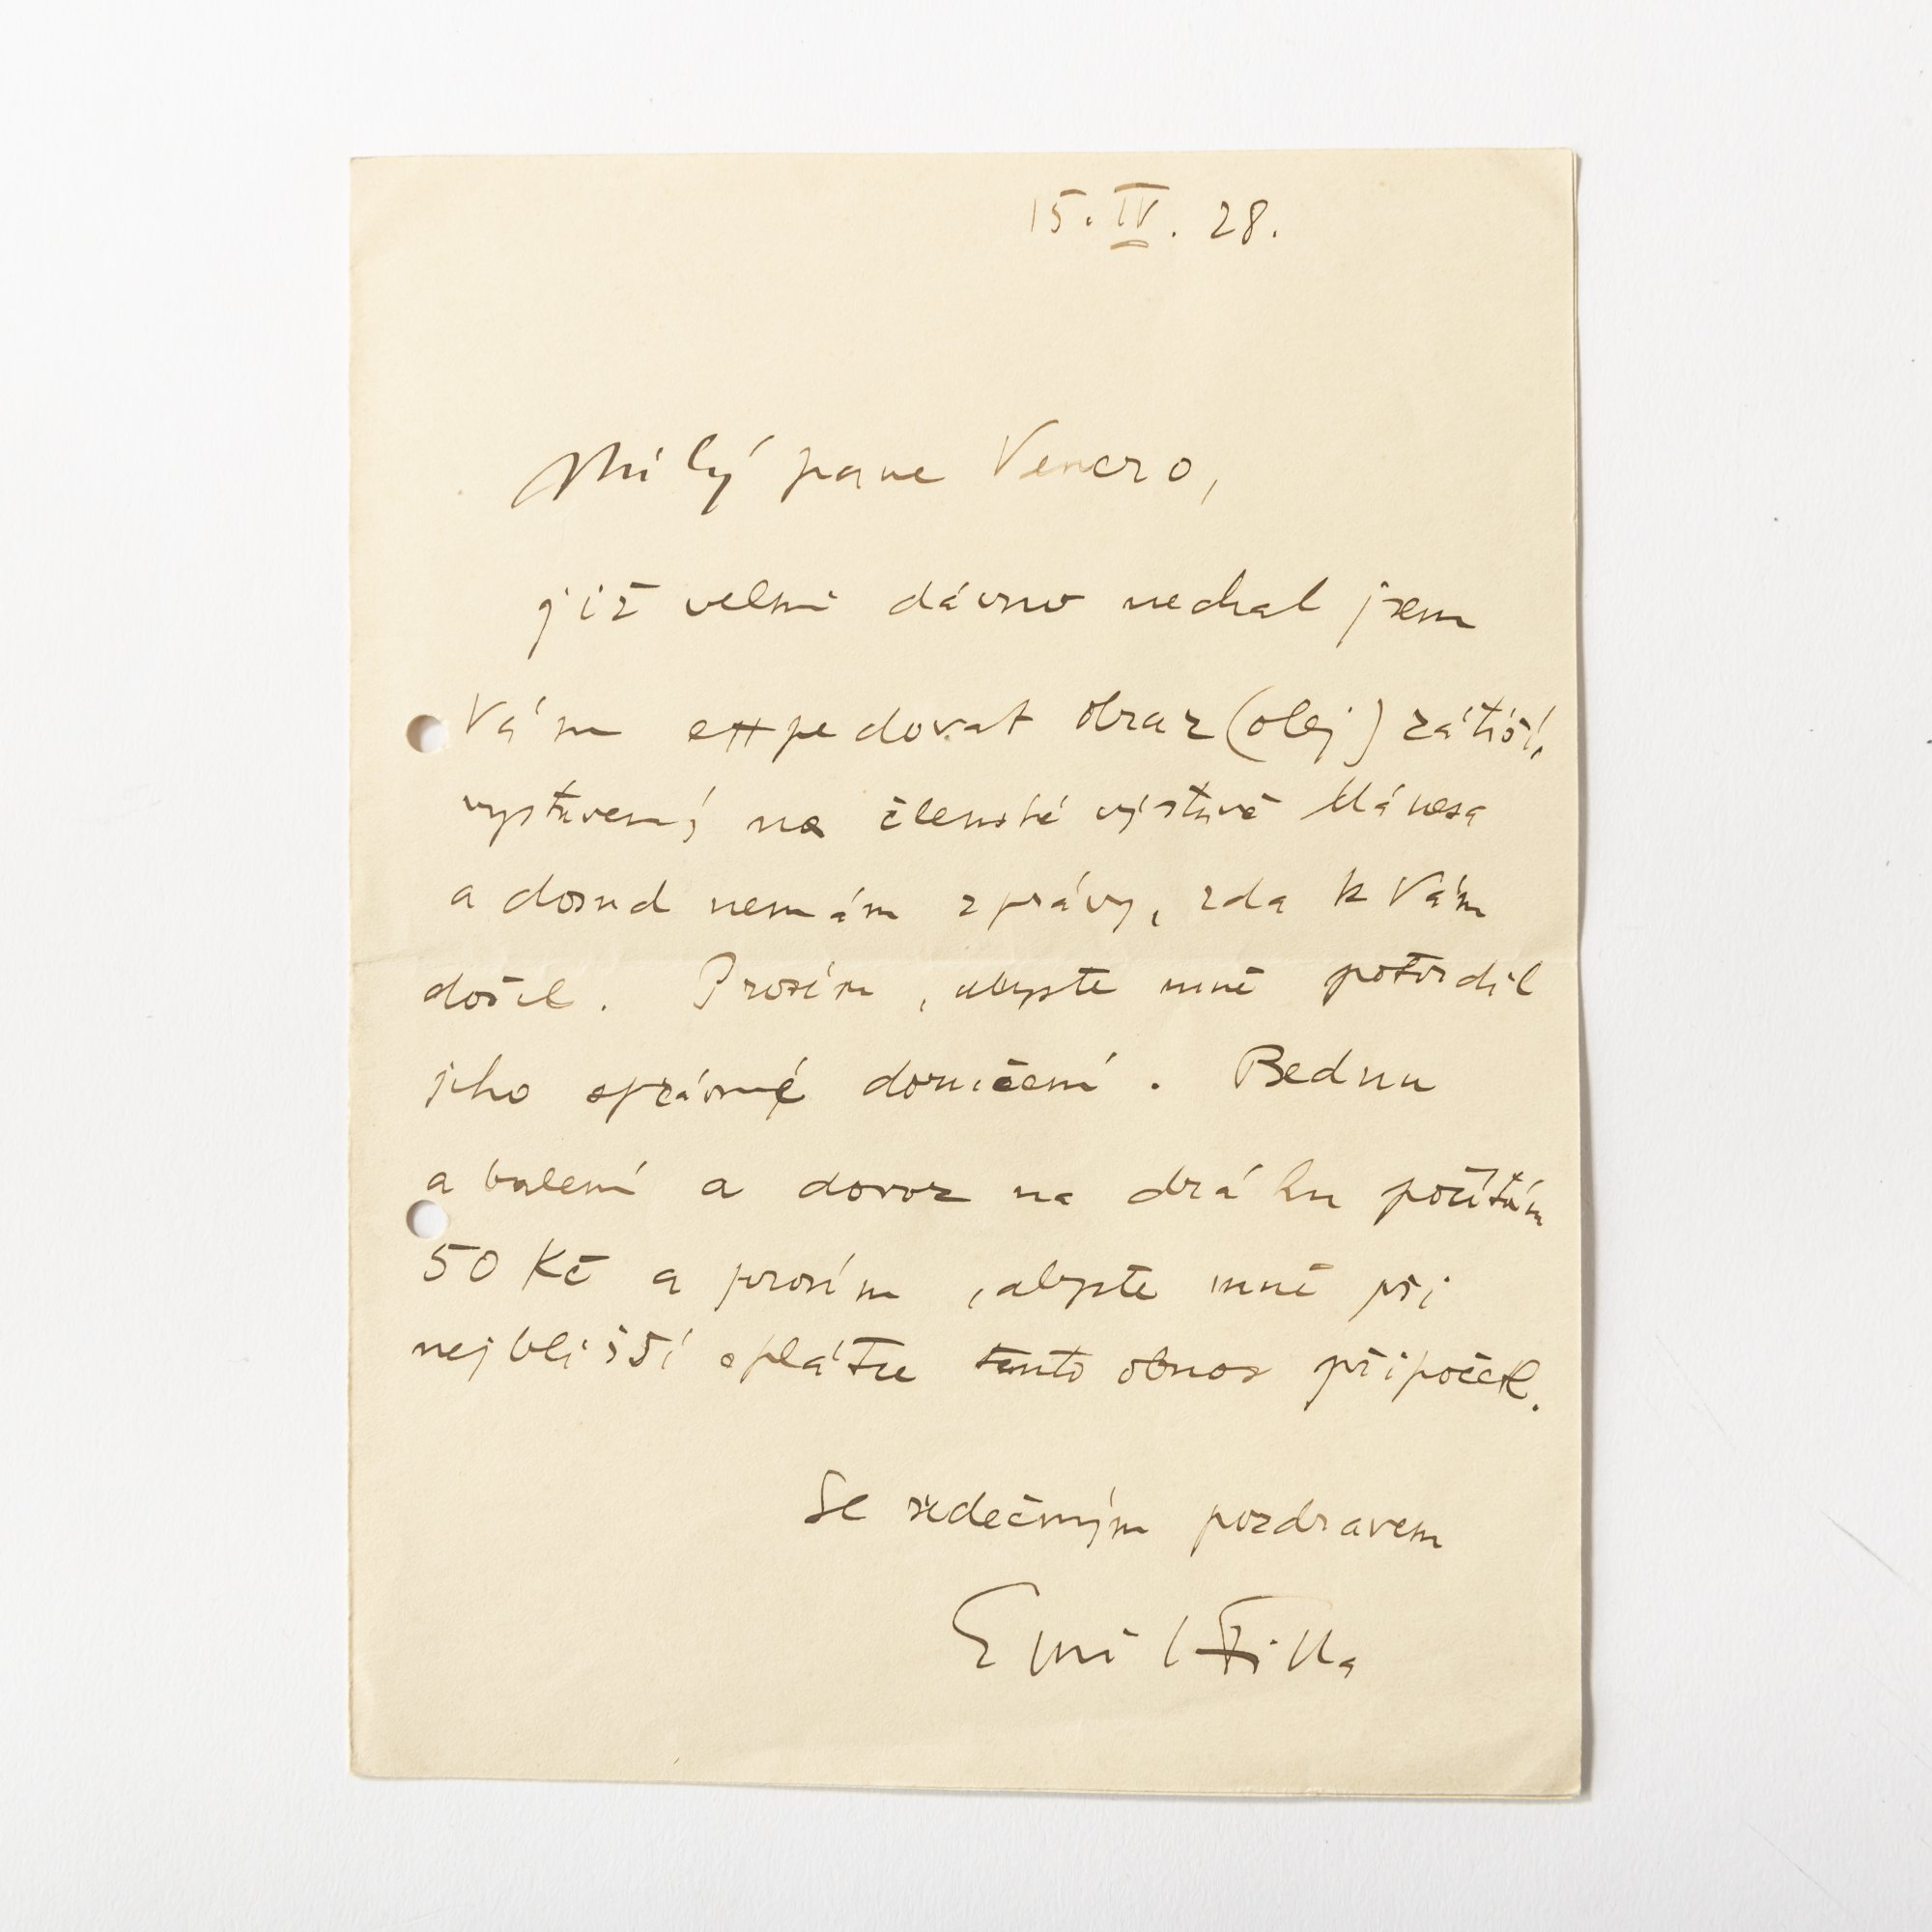 15. IV. 28.
Milý pane Venero,
již velmi dávno nechal jsem
Vám expedovat obraz (olej) zátiší,
vystavený na členské výstavě Mánesa
a dosud nemám zprávy, zda k Vám
došel. Prosím, abyste mně potvrdil
jeho správné doručení. Bednu
a balení a dovoz na dráhu počítám
50 Kč a prosím, abyste mně při
nejbližší splátce tento obnos připoček.
Se srdečným pozdravem
Emil Filla